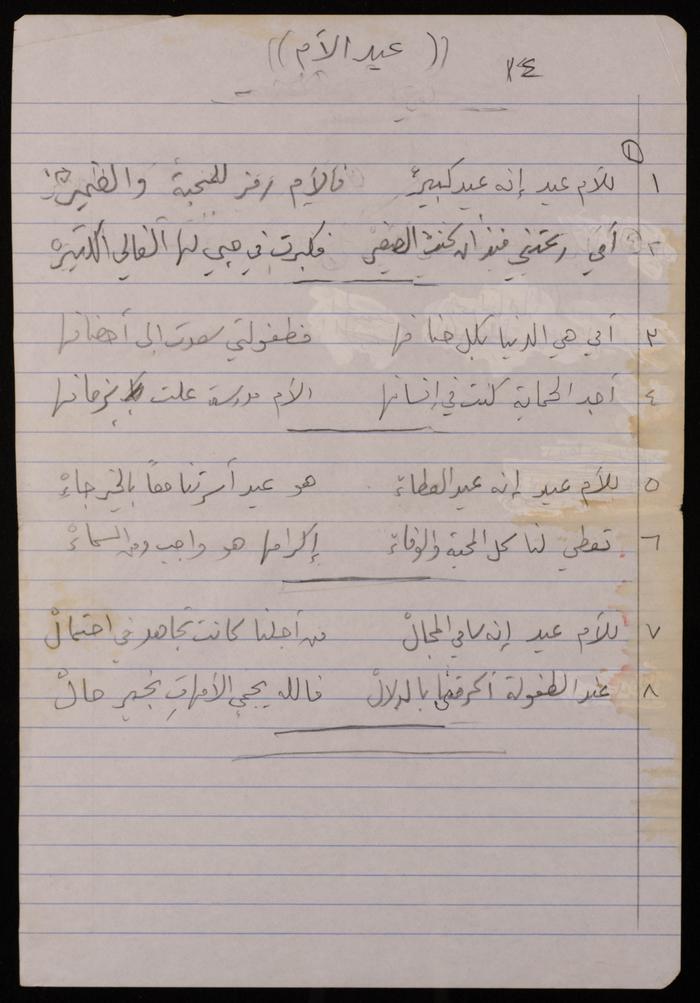 (( عيد الأم ))
١٤
١
١ للأم عيد إنه عيد كبيرْ فالأم رمز للمحبة والضميرْ
٢ أمي رعتني منذ أن كنت الصغير فكبرت في حبي لها الغالي الكبير
٣ أمي هي الدنيا بكل حنانها فطفولتي سعدت إلى أحضانها
٤ أجد الحماية كنت في إنسانها الأم مدرسة علت بزمانها
٥ للأم عيد إنه عيد العطاءْ هو عيد أسرتنا معاً بالخير جاءْ
٦ تعطي لنا كل المحبة والوفاءْ إكرامها هو واجب ومن السماءْ
٧ للأم عيد إنه سامي المجالْ من أجلنا كانت تجاهد في احتمالْ
٨ عند الطفولة أكرمتني بالدلالْ فالله يحمي الأمهاتِ بخير حالْ